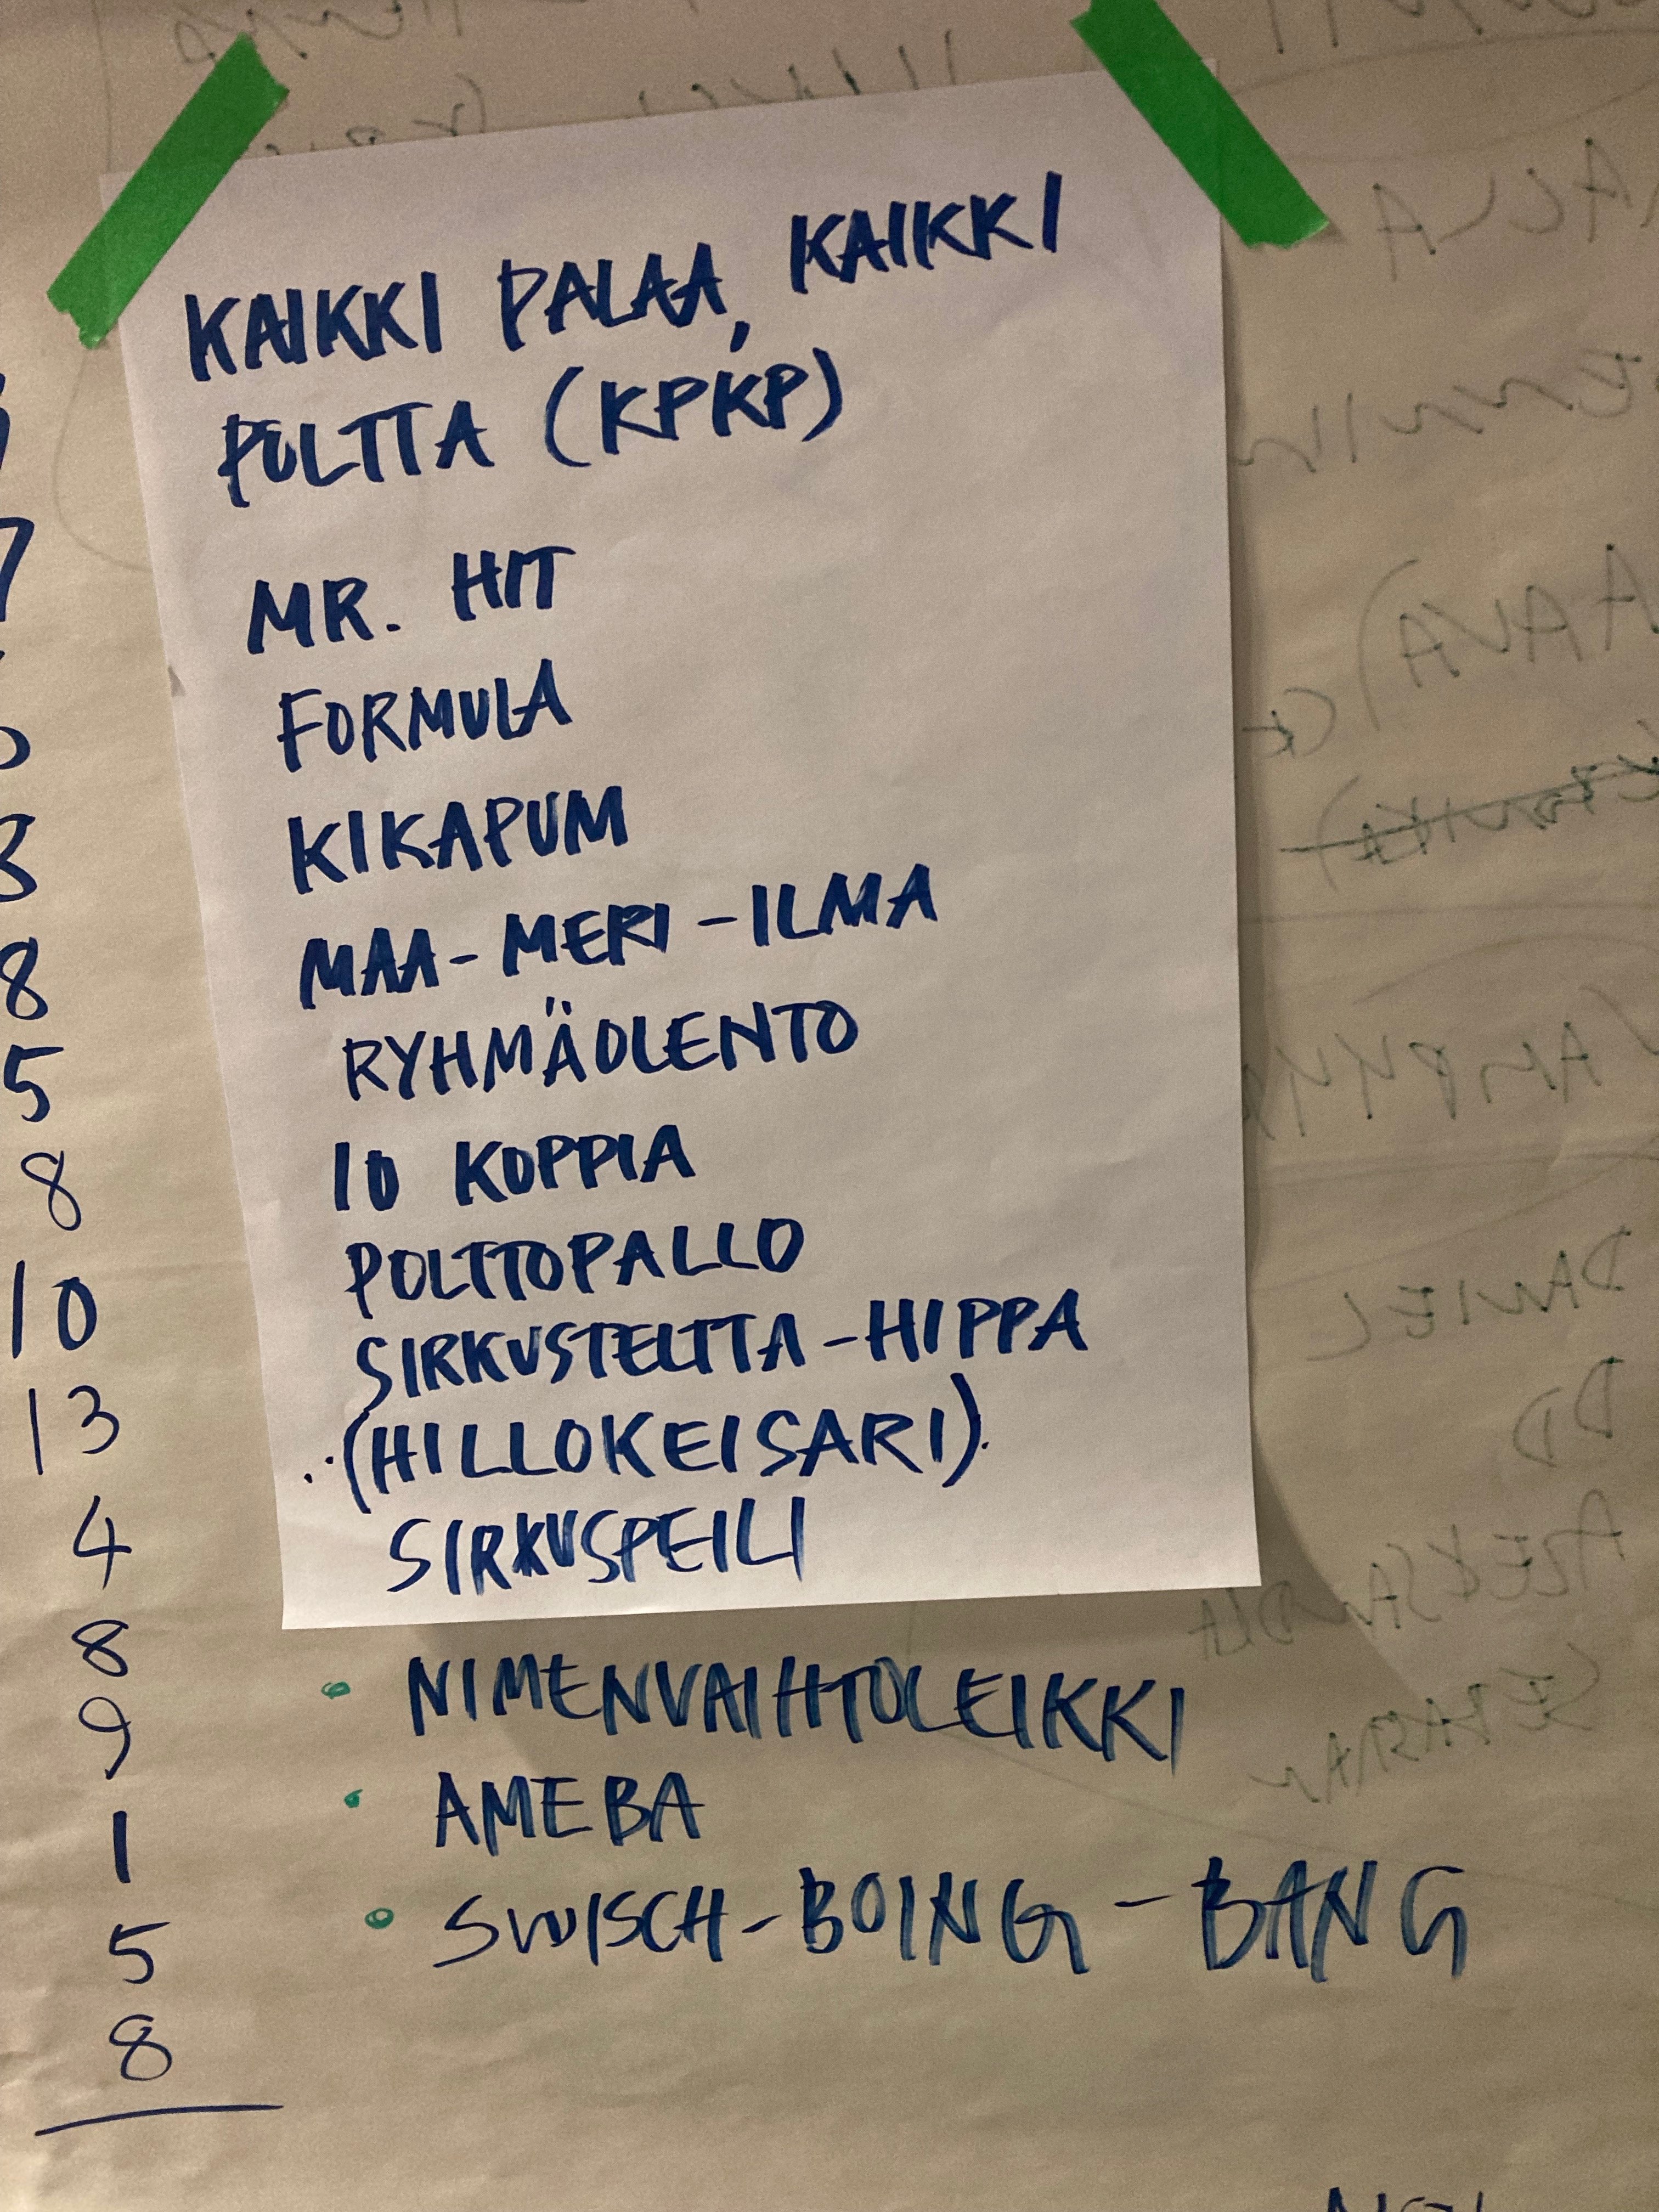 KAIKKI PALAA, KAIKKI
POLTTA (KPKP)
MR. HIT
FORMULA
KIKAPUM
MAA-MERI-ILMA
RYHMÄOLENTO
10 KOPPIA
POLTTOPALLO
SIRKUSTELTTA-HIPPA
(HILLOKEISARI)
SIRKUSPEILI
• NIMENVAIHTOLEIKKI
• AMEBA
• SWISCH-BOING-BANG
3
8
5
8
10
13
4
8
9
1
5
8
DANIEL
DD